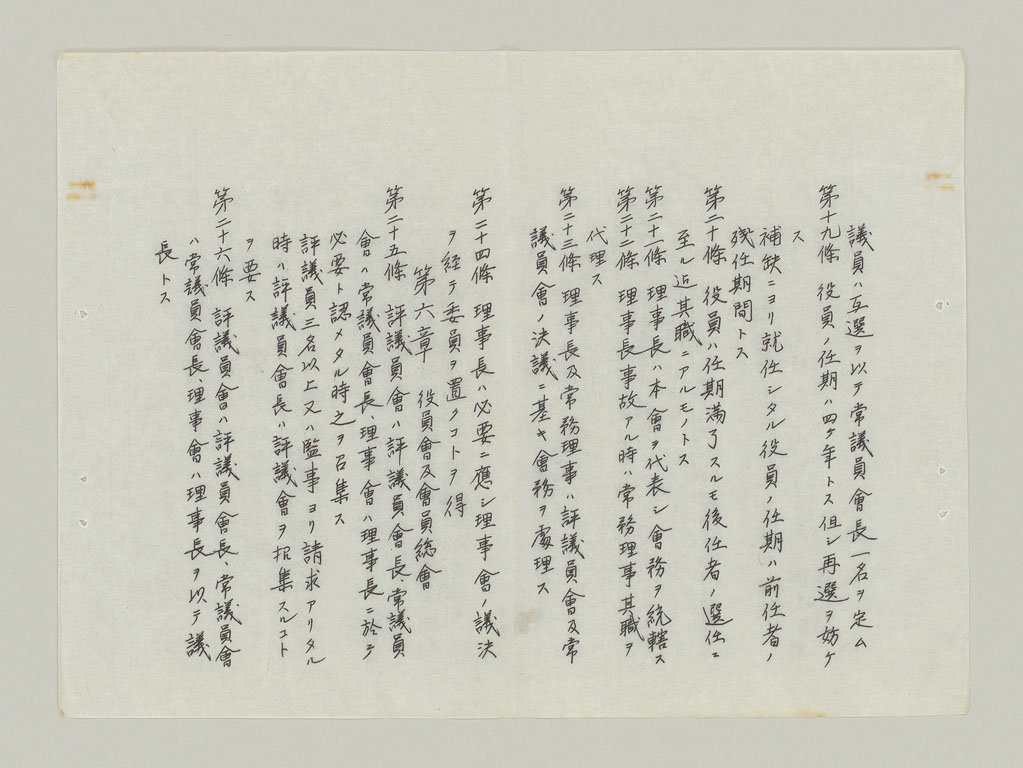 議員ハ互選ヲ以テ常議員會長一名ヲ定ム
第十九條 役員ノ任期ハ四ケ年トス但シ再選ヲ妨ケ
ス
補缺ニヨリ就任シタル役員ノ任期ハ前任者ノ
殘任期間トス
第二十條 役員ハ任期滿了スルモ後任者ノ選任ニ
至ル迠其職ニアルモノトス
第二十一條 理事長ハ本會ヲ代表シ會務ヲ統轄ス
第二十二條 理事長事故アル時ハ常務理事其職ヲ
代理ス
第二十三條 理事長及常務理事ハ評議員會及常
議員會ノ決議ニ基キ會務ヲ處理ス
第二十四條 理事長ハ必要ニ應シ理事會ノ議決
ヲ経テ委員ヲ置クコトヲ得
第六章 役員會及會員総會
第二十五條 評議員會ハ評議員會長、常議員
會ハ常議員會長、理事會ハ理事長ニ於テ
必要ト認メタル時之ヲ召集ス
評議員三名以上又ハ監事ヨリ請求アリタル
時ハ評議員會長ハ評議會ヲ招集スルコト
ヲ要ス
第二十六條 評議員會ハ評議員會長、常議員會
ハ常議員會長、理事會ハ理事長ヲ以テ議
長トス